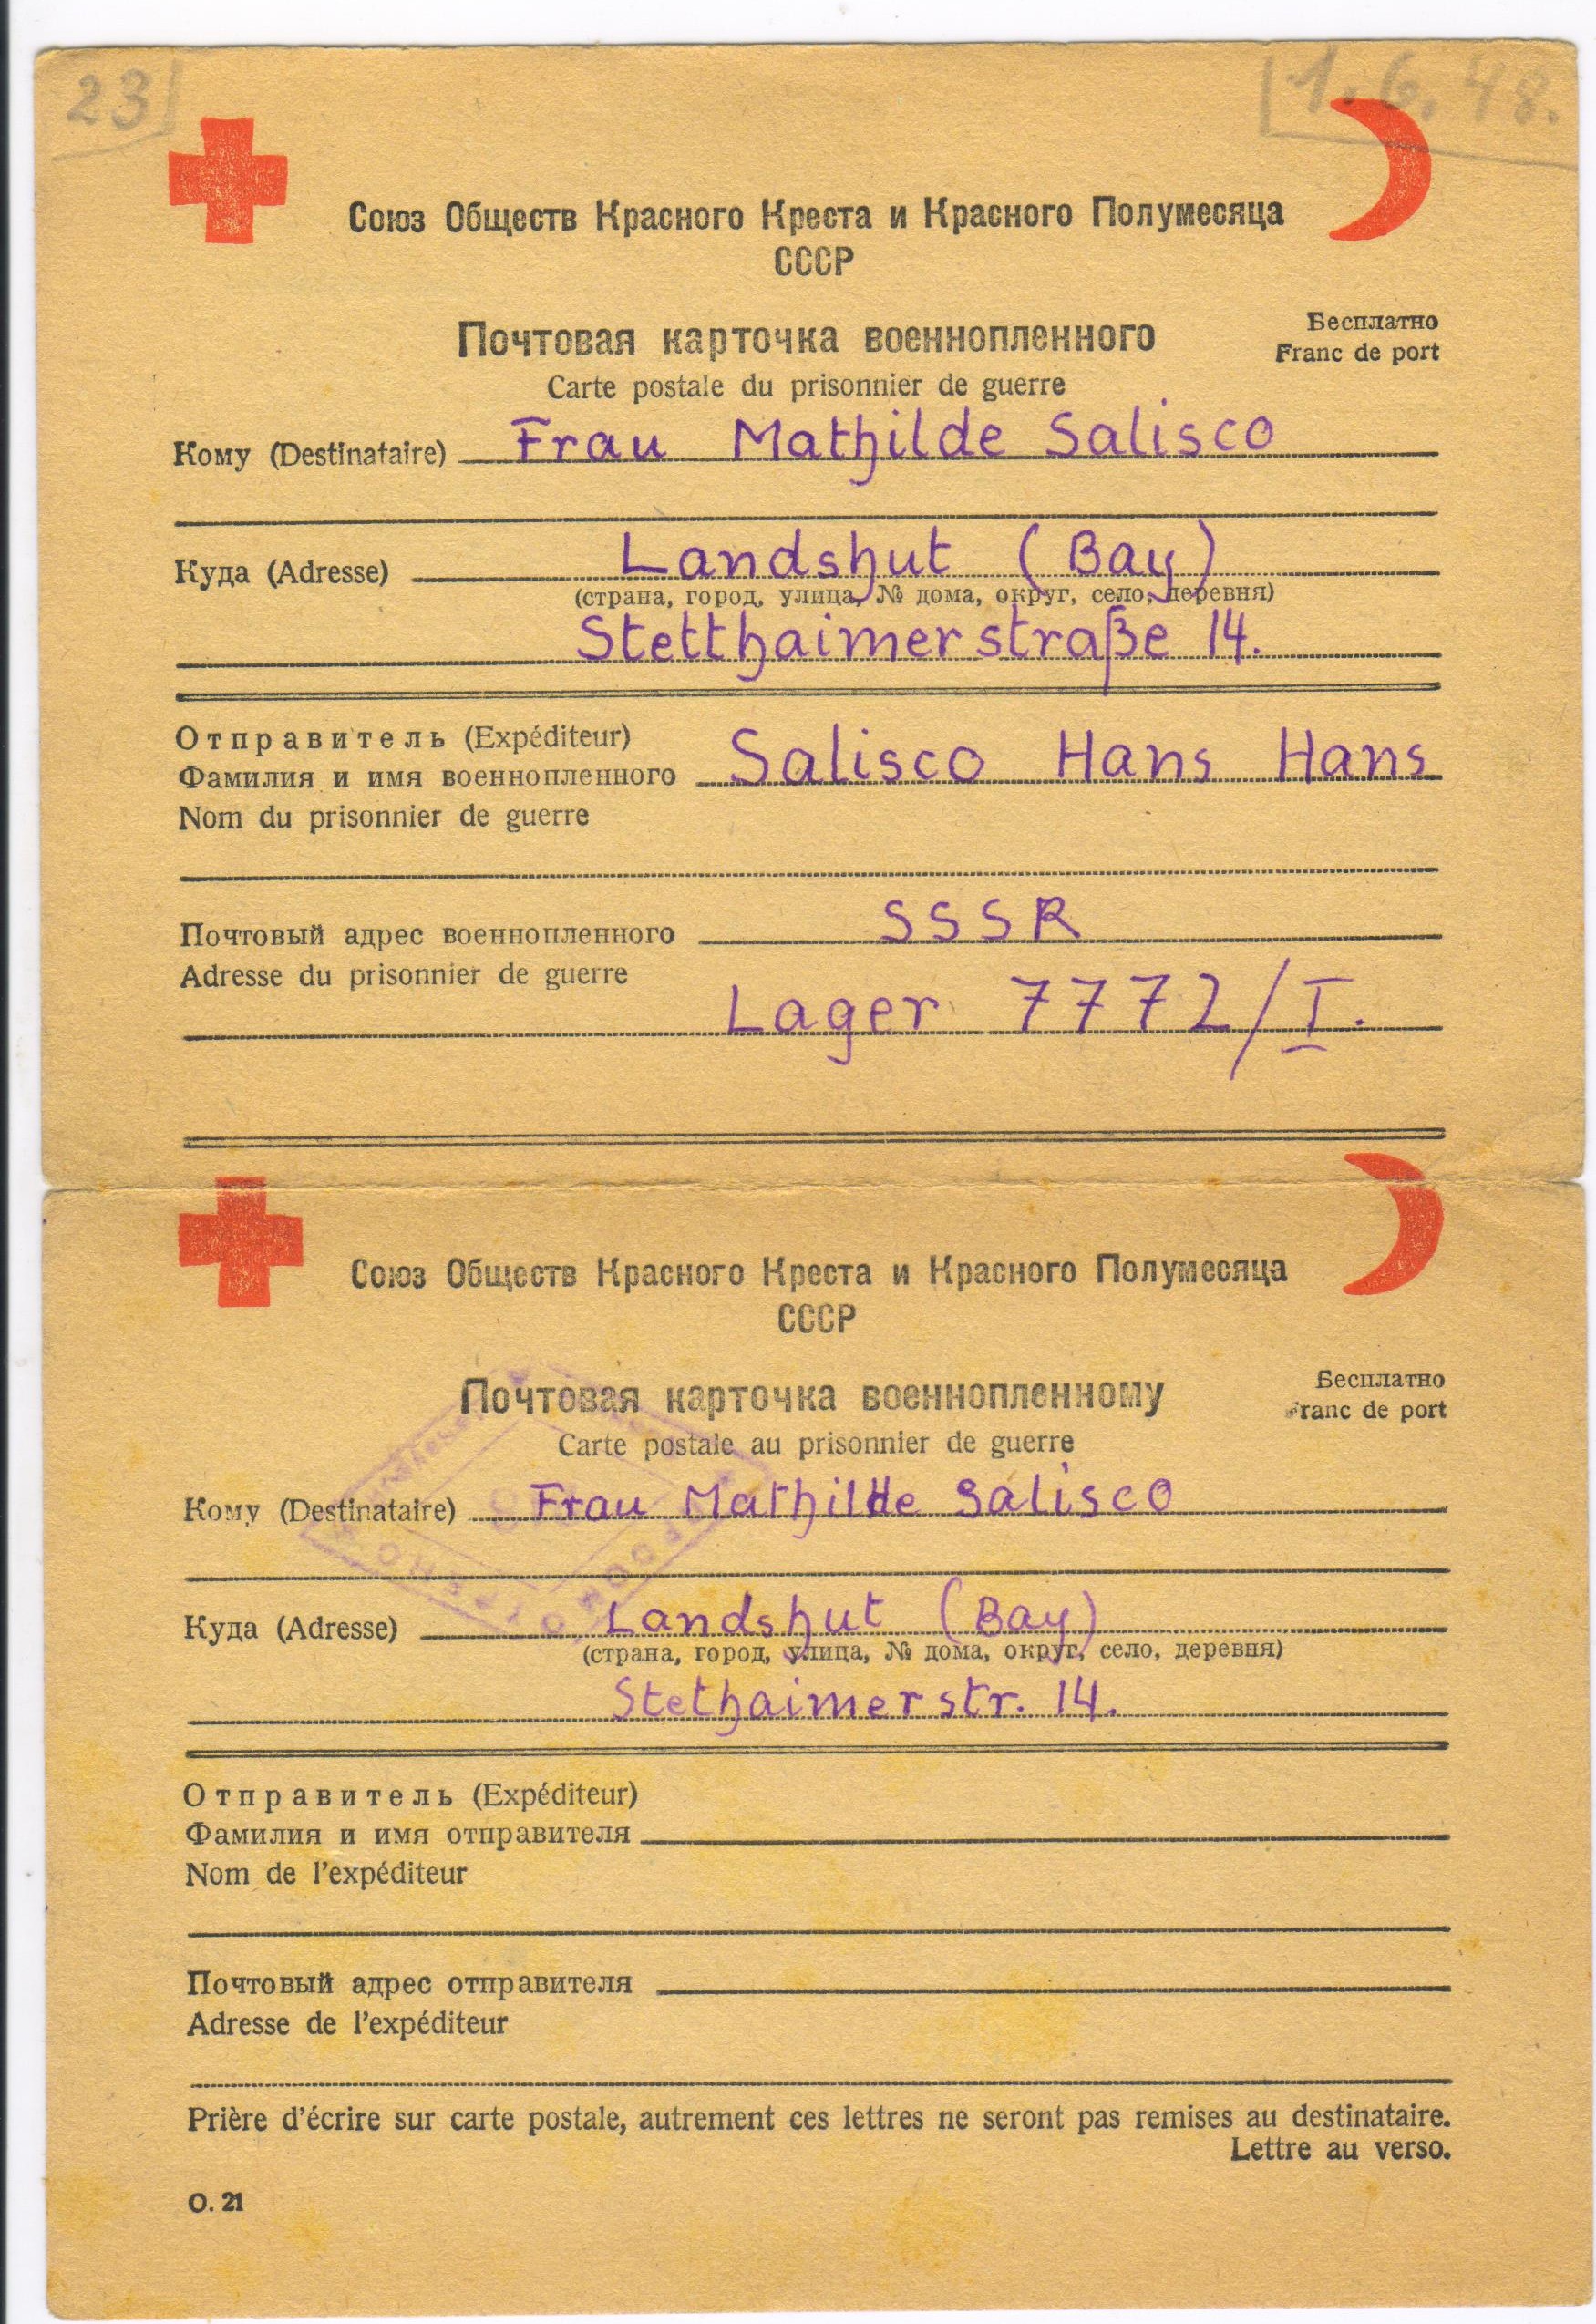 23
1.6.48.
Союз Обществ Красного Креста и Красного Полумесяца
СССР
Почтовая карточка военнопленного
Бесплатно
Carte postale du prisonnier de guerre
Franc de port
Кому (Destinataire) Frau Mathilde Salisco
Куда (Adresse) Landshut (Bay)
(страна, город, улица, № дома, округ, село, деревня)
Stetthaimerstraße 14.
Отправитель (Expéditeur)
Фамилия и имя военнопленного Salisco Hans Hans
Nom du prisonnier de guerre
Почтовый адрес военнопленного SSSR
Adresse du prisonnier de guerre
Lager 7772/I.
Союз Обществ Красного Креста и Красного Полумесяца
СССР
Почтовая карточка военнопленному
Бесплатно
Carte postale au prisonnier de guerre
Franc de port
Кому (Destinataire) Frau Mathilde Salisco
Куда (Adresse) Landshut (Bay)
(страна, город, улица, № дома, округ, село, деревня)
Stethaimerstr. 14.
Отправитель (Expéditeur)
Фамилия и имя отправителя
Nom de l'expéditeur
Почтовый адрес отправителя
Adresse de l'expéditeur
Prière d'écrire sur carte postale, autrement ces lettres ne seront pas remises au destinataire.
Lettre au verso.
О. 21